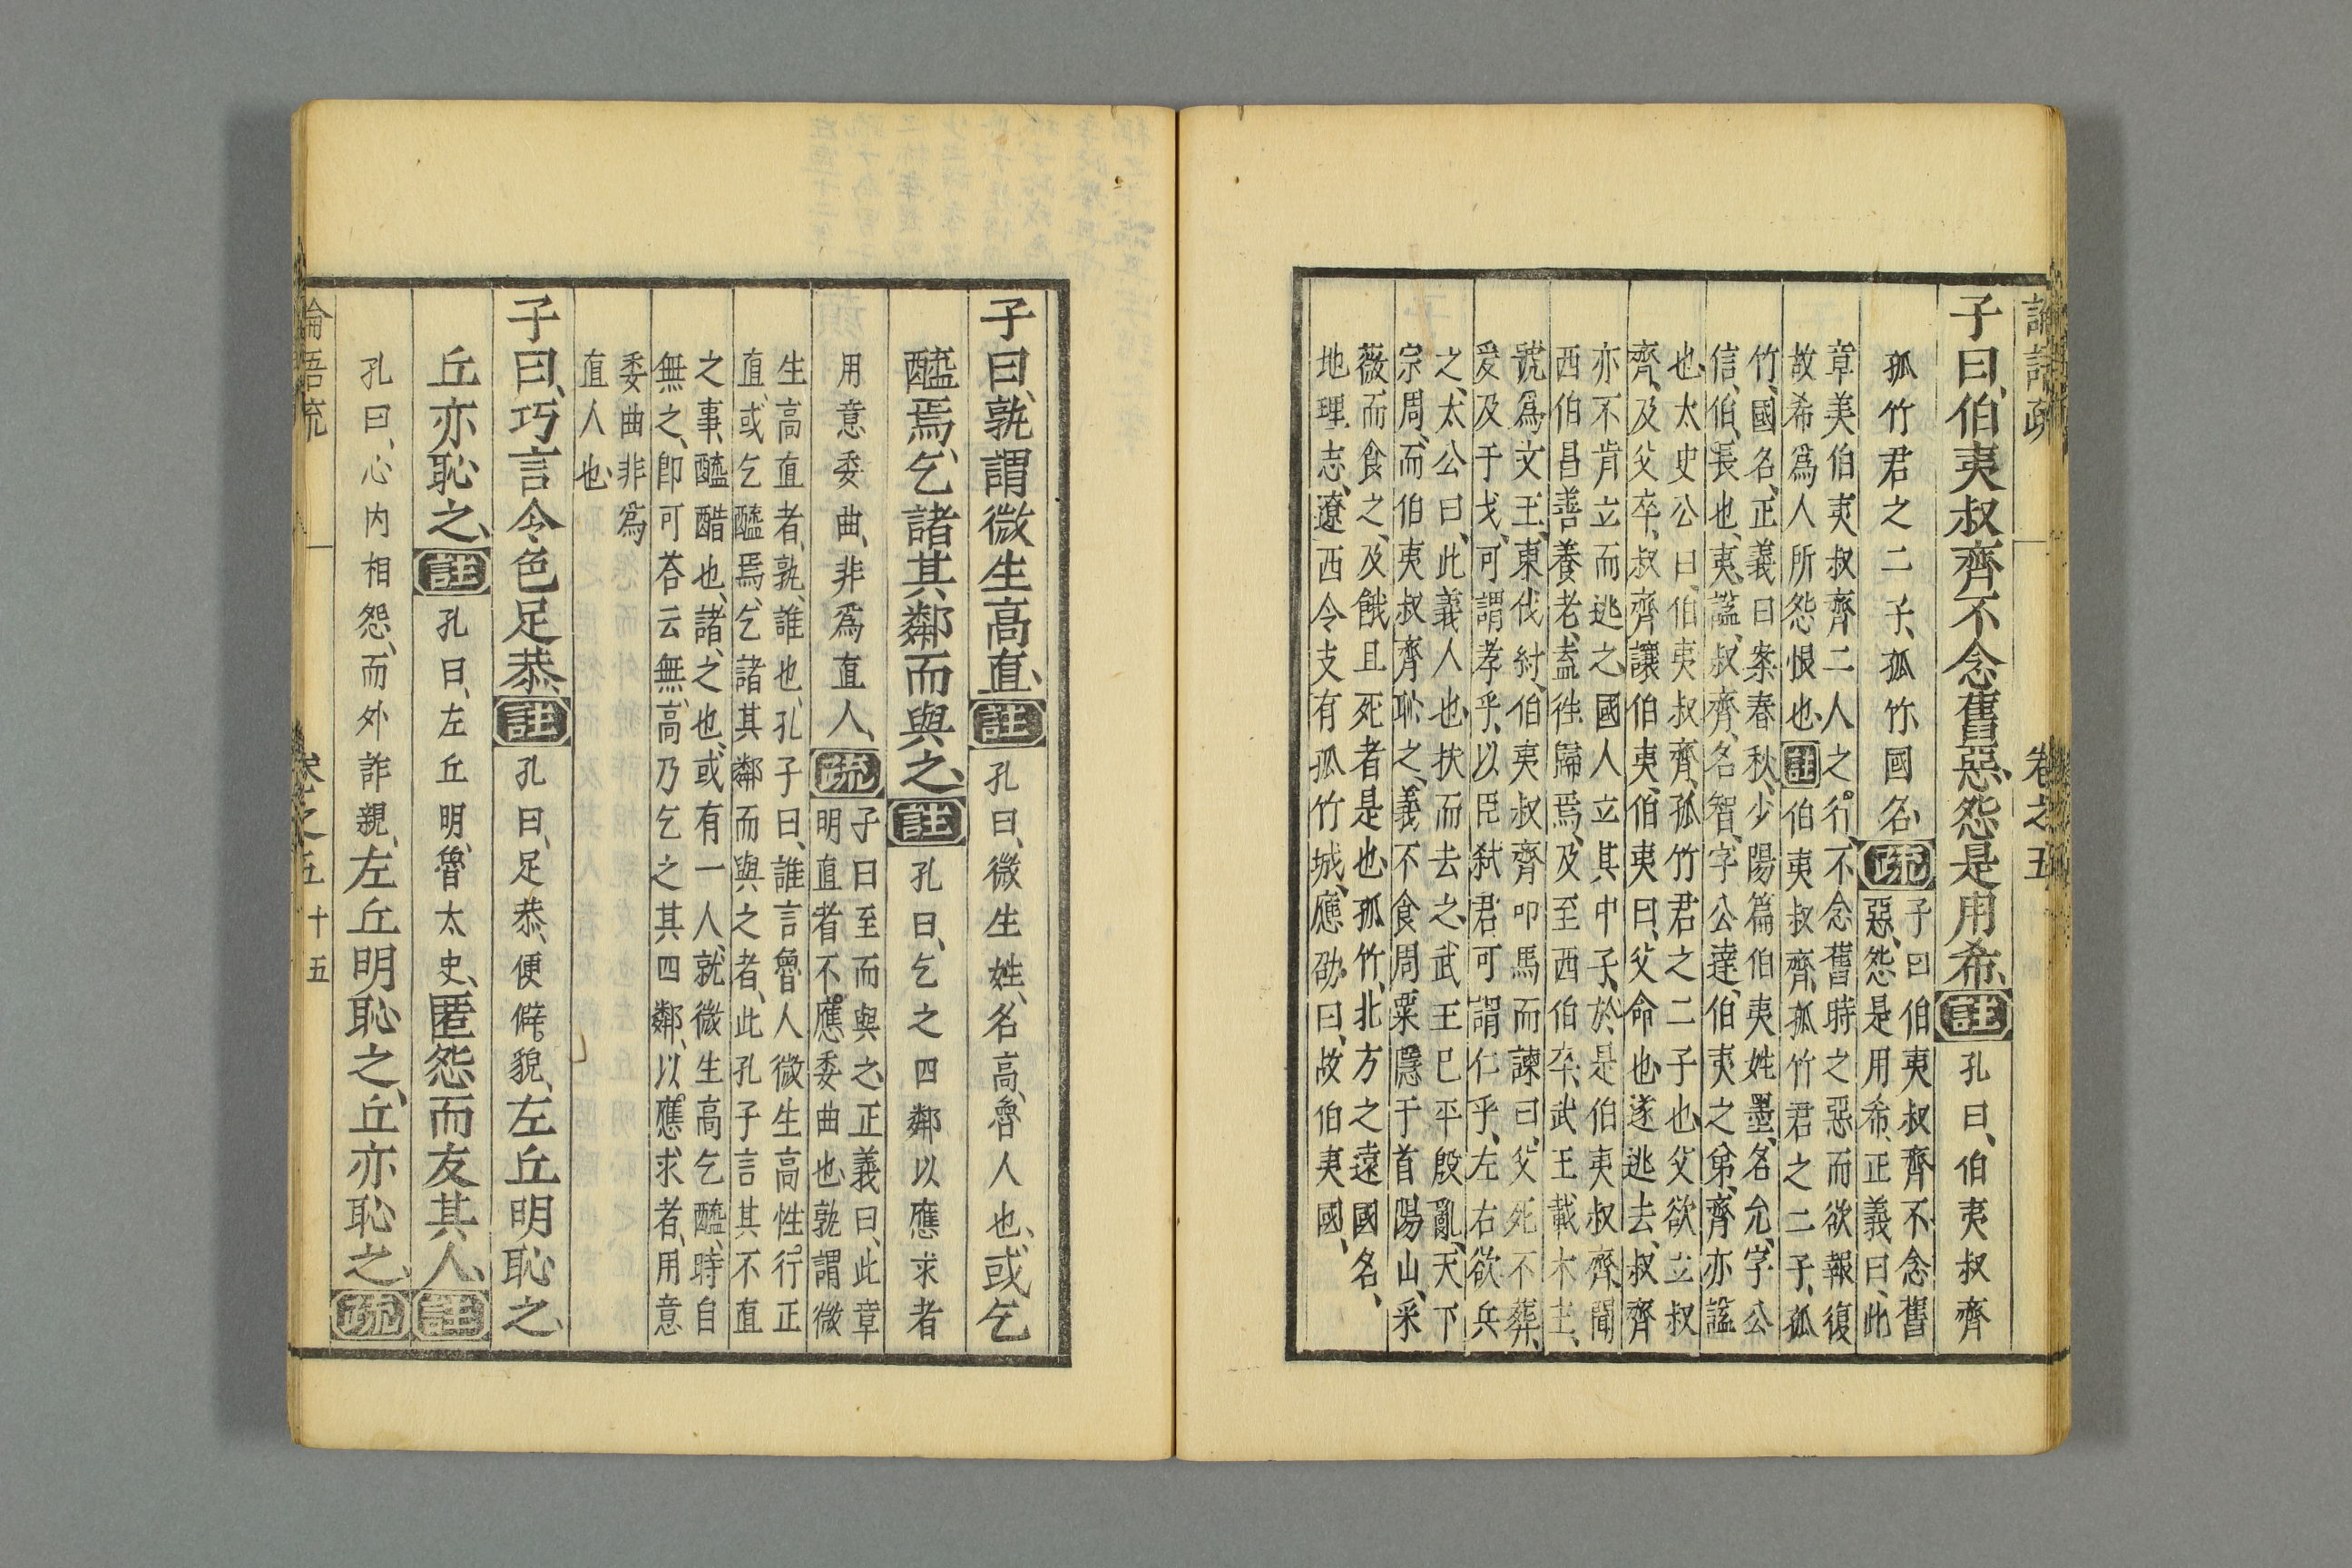 論語疏 卷之五
子曰、伯夷叔齊不念舊惡、怨是用希、註孔曰、伯夷叔齊
孤竹君之二子、孤竹國名、疏子曰伯夷叔齊不念舊
惡、怨是用希、正義曰、此
章美伯夷叔齊二人之行、不念舊時之惡而欲報復
故希爲人所怨恨也、註伯夷叔齊、孤竹君之二子、孤
竹、國名、正義曰案春秋、少陽篇伯夷、姓墨、名允、字公
信、伯、長也、夷、謚、叔齊、名智、字公達、伯夷之弟、齊亦謚
也、太史公曰、伯夷叔齊、孤竹君之二子也、父欲立叔
齊、及父卒、叔齊讓伯夷、伯夷曰、父命也、遂逃去、叔齊
亦不肯立而逃之、國人立其中子、於是伯夷叔齊、聞
西伯昌善養老、盍徃歸焉、及至西伯卒、武王載木主、
號爲文王、東伐紂、伯夷叔齊叩馬而諫曰、父死不葬、
爰及于戈、可謂孝乎、以臣弑君、可謂仁乎、左右欲兵
之、太公曰、此義人也、扶而去之、武王巳平殷亂、天下
宗周、而伯夷叔齊恥之、義不食周粟、隱于首陽山、采
薇而食之、及餓且死者是也、孤竹、北方之遠國名、
地理志、遼西令支有孤竹城、應劭曰、故伯夷國、
子曰、孰謂微生高直、註孔曰、微生姓、名高、魯人也、或乞
醯焉、乞諸其鄰而與之、註孔曰、乞之四鄰以應求者
用意委曲、非爲直人、疏子曰至而與之、正義曰、此章
明直者不應委曲也、孰謂微
生高直者、孰、誰也、孔子曰、誰言魯人微生高性行正
直、或乞醯焉、乞諸其鄰而與之者、此孔子言其不直
之事、醯、醋也、諸、之也、或有一人、就微生高乞醯、時自
無之、卽可荅云無、高乃乞之其四鄰、以應求者、用意
委曲非爲
直人也
子曰、巧言令色足恭、註孔曰、足恭、便僻貌、左丘明恥之、
丘亦恥之、註孔曰、左丘明、魯太史、匿怨而友其人、註
孔曰、心内相怨、而外詐親、左丘明恥之、丘亦恥之、疏
論語疏 卷之五 十五